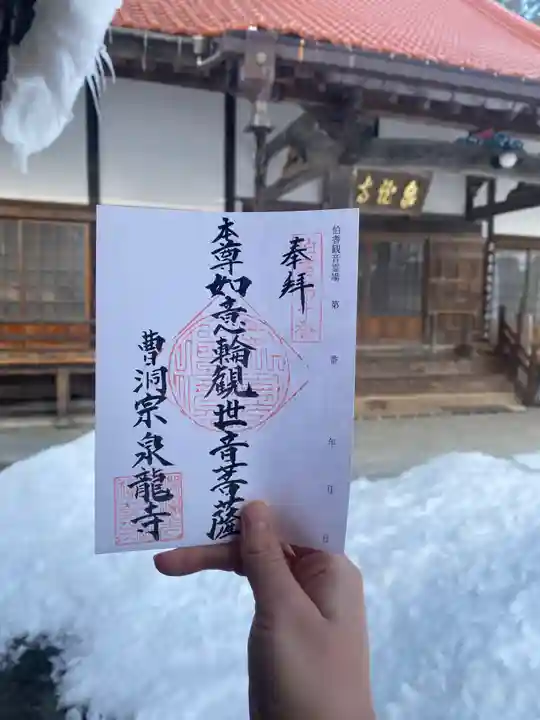 伯耆観音霊場 第 番 年 月 日
奉拝
本尊如意輪観世音菩薩
曹洞宗泉龍寺
泉龍寺